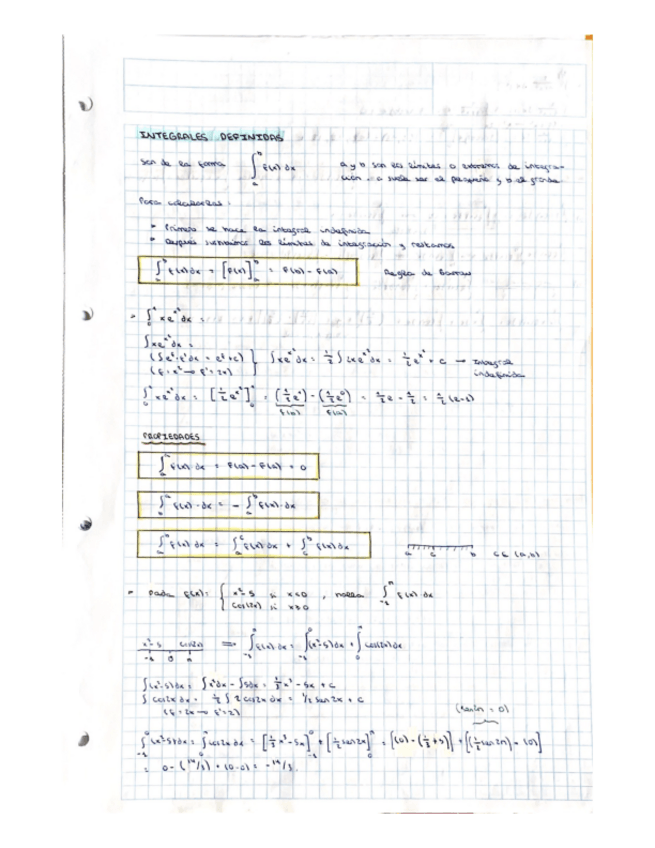 INTEGRALES DEFINIDAS
Son de la forma ∫ₐᵇ f(x) dx a y b son los límites o extremos de integra-
ción. a suele ser el pequeño y b el grande
Para calcularlas:
• Primero se hace la integral indefinida
• Después sustituimos los límites de integración y restamos
∫ₐᵇ f(x) dx = [F(x)]ₐᵇ = F(b) - F(a) Regla de Barrow
∫₀¹ xeˣ² dx =
∫xeˣ² dx =
(∫eᶠ·f' dx = eᶠ + c) } ∫xeˣ² dx = 1/2 ∫2xeˣ² dx = 1/2 eˣ² + c → Integral
(f = x² → f' = 2x) indefinida
∫₀¹ xeˣ² dx = [1/2 eˣ²]₀¹ = (1/2 e¹) - (1/2 e⁰) = 1/2 e - 1/2 = 1/2 (e-1)
F(b) F(a)
PROPIEDADES
∫ₐᵃ f(x) dx = F(a) - F(a) = 0
∫ₐᵇ f(x)·dx = - ∫ f(x)·dx
∫ₐᵇ f(x) dx = ∫ₐᶜ f(x) dx + ∫꜀ᵇ f(x) dx a c b c ∈ (a,b)
Dada f(x): { x²-5 si x<0 , halla ∫₋₁ f(x) dx
cos(2x) si x≥0
x²-5 cos(2x) ⟹ ∫₋₁ f(x) dx = ∫₋₁⁰ (x²-5) dx + ∫₀ cos(2x) dx
-1 0 π
∫(x²-5) dx = ∫x² dx - ∫5 dx = 1/3 x³ - 5x + c
∫cos 2x dx = 1/2 ∫2 cos 2x dx = 1/2 sen 2x + c
(f = 2x → f' = 2)
∫₋₁⁰ (x²-5) dx + ∫₀ cos 2x dx = [1/3 x³ - 5x]₋₁⁰ + [1/2 sen 2x]₀ = [(0) - (1/3 + 5)] + [(1/2 sen 2π) - (0)]
= 0 - (14/3) + (0-0) = -14/3.